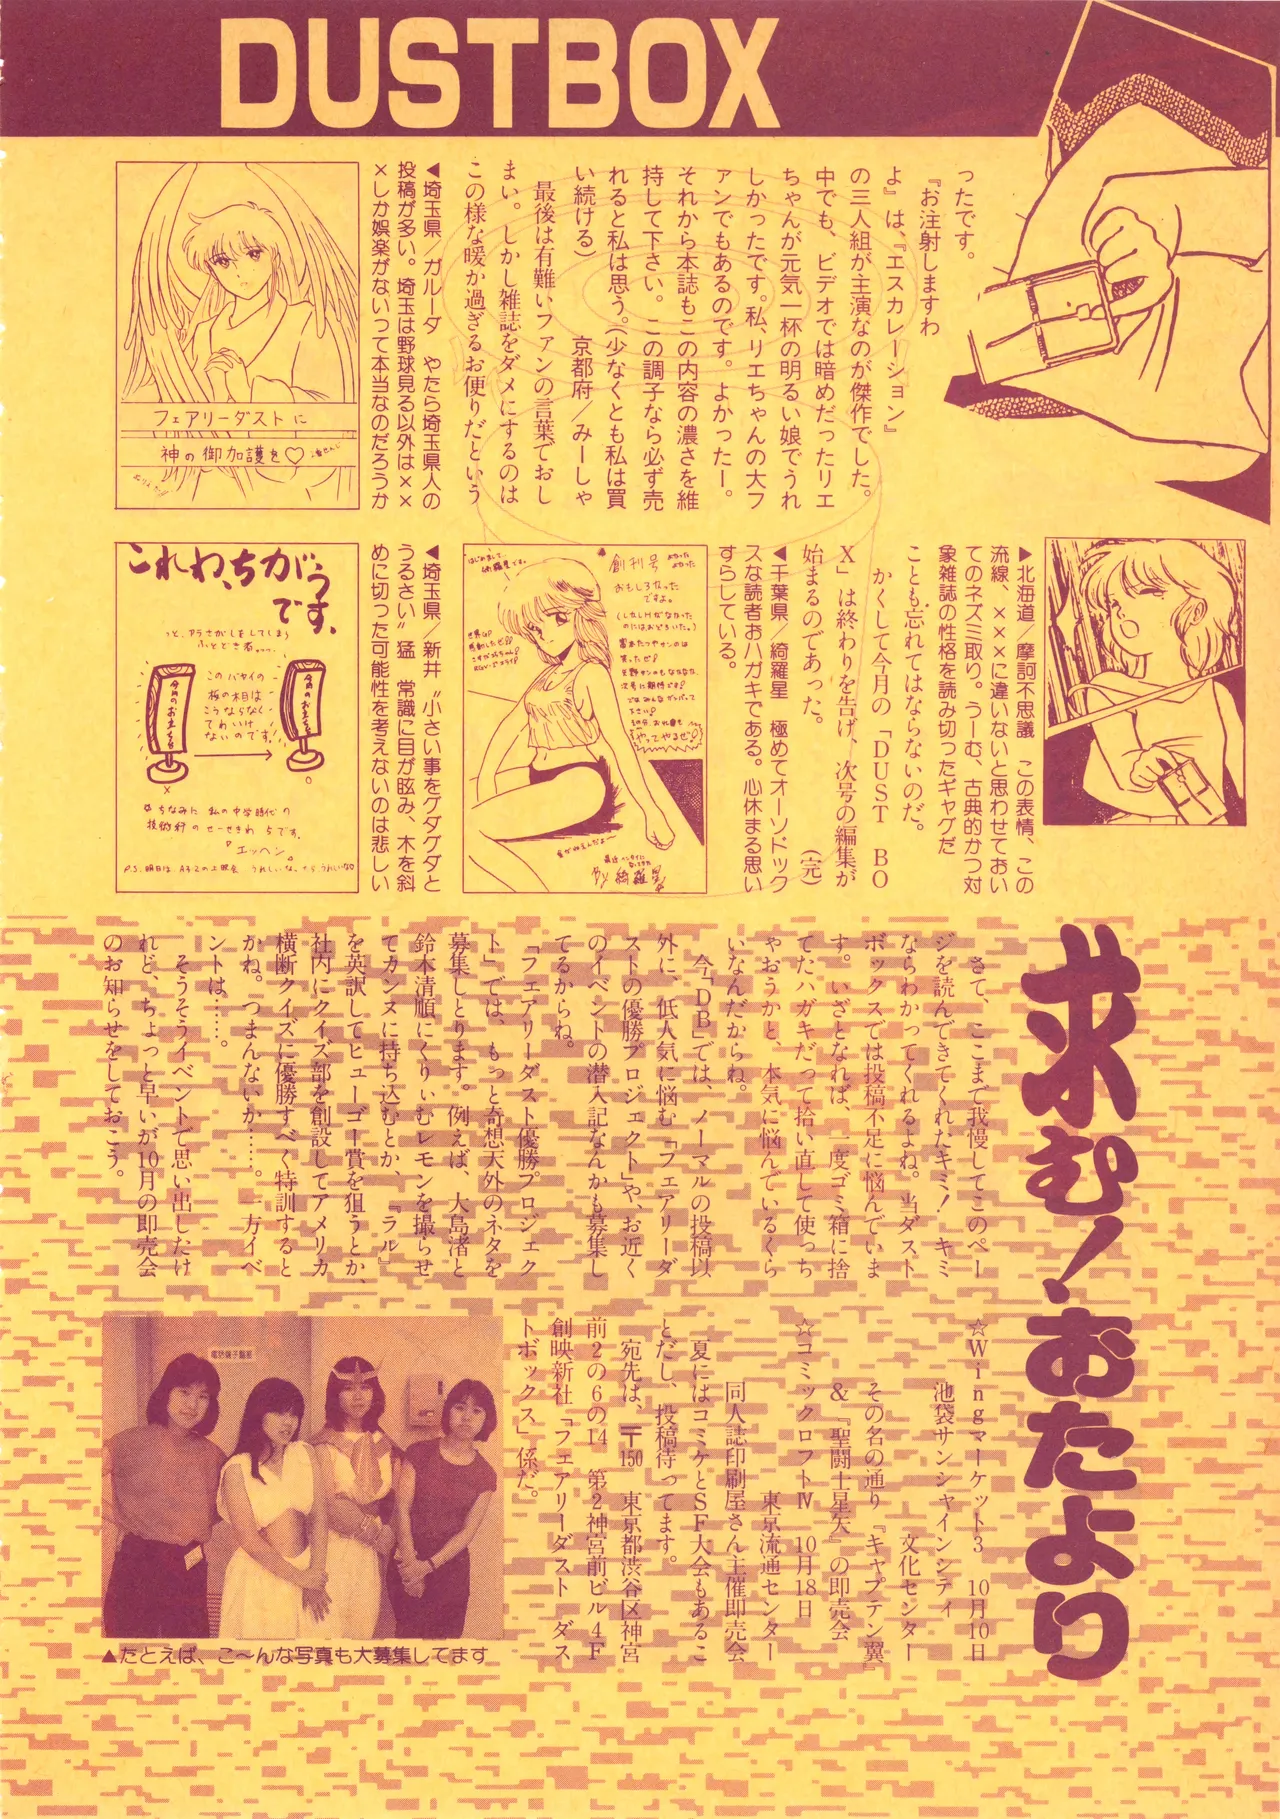 DUSTBOX
ったです。
『お注射しますわ
よ』は、『エスカレーション』
の三人組が主演なのが傑作でした。
中でも、ビデオでは暗めだったリエ
ちゃんが元気一杯の明るい娘でうれ
しかったです。私、リエちゃんの大フ
ァンでもあるのです。よかったー。
それから本誌もこの内容の濃さを維
持して下さい。この調子なら必ず売
れると私は思う。(少なくとも私は買
い続ける)　　京都府/みーしゃ
最後は有難いファンの言葉でおし
まい。しかし雑誌をダメにするのは
この様な暖か過ぎるお便りだという
◀埼玉県/ガルーダ　やたら埼玉県人の
投稿が多い。埼玉は野球見る以外は××
×しか娯楽がないって本当なのだろうか
フェアリーダストに
神の御加護を♡
▶北海道/摩訶不思議　この表情、この
流線、×××に違いないと思わせておい
てのネズミ取り。うーむ、古典的かつ対
象雑誌の性格を読み切ったギャグだ
ことも忘れてはならないのだ。
かくして今月の「DUST　BO
X」は終わりを告げ、次号の編集が
始まるのであった。　　(完)
◀千葉県/綺羅星　極めてオーソドック
スな読者おハガキである。心休まる思い
すらしている。
はじめまして
綺羅星です。
創刊号
よかった
よかった
おもしろなった
ですよ。
やってやるぜ!
by 綺羅星
◀埼玉県/新井 “小さい事をグダグダと
うるさい” 猛　常識に目が眩み、木を斜
めに切った可能性を考えないのは悲しい
これわ、ちがう
です、
っと、アラさがしをしてしまう
ふとどき者……
このバヤイの
板の木目は
こうならなく
てわいけ
ないのです!
ちなみに 私の中学時代の
技術科のせーせきわ 5です。
『エッヘン』。
求む!おたより
さて、ここまで我慢してこのペー
ジを読んできてくれたキミ!　キミ
ならわかってくれるよね。当ダスト
ボックスでは投稿不足に悩んでいま
す。いざとなれば、一度ゴミ箱に捨
てたハガキだって拾い直して使っち
ゃおうかと、本気に悩んでいるくら
いなんだからね。
今「DB」では、ノーマルの投稿以
外に、低人気に悩む「フェアリーダ
ストの優勝プロジェクト」や、お近く
のイベントの潜入記なんかも募集し
てるからね。
「フェアリーダスト優勝プロジェク
ト」では、もっと奇想天外のネタを
募集しとります。例えば、大島渚と
鈴木清順にくりぃむレモンを撮らせ
てカンヌに持ち込むとか、『ラル』
を英訳してヒューゴー賞を狙うとか、
社内にクイズ部を創設してアメリカ
横断クイズに優勝すべく特訓すると
かね。つまんないか……。一方イベ
ントは……。
そうそうイベントで思い出したけ
れど、ちょっと早いが10月の即売会
のお知らせをしておこう。
☆Wingマーケット3　10月10日
池袋サンシャインシティ
文化センター
その名の通り『キャプテン翼』
&『聖闘士星矢』の即売会
☆コミックロフトⅣ　10月18日
東京流通センター
同人誌印刷屋さん主催即売会
夏にはコミケとSF大会もあるこ
とだし、投稿待ってます。
宛先は、〒150　東京都渋谷区神宮
前2の6の14　第2神宮前ビル4F
創映新社「フェアリーダスト　ダス
トボックス」係だ。
▲たとえば、こ〜んな写真も大募集してます